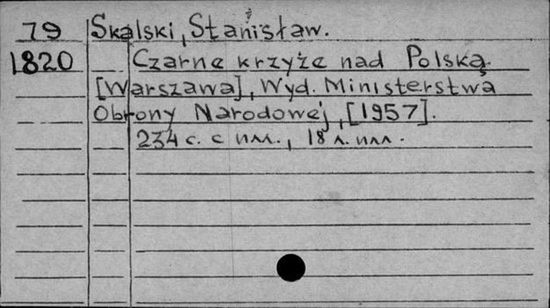 79 Skalski, Stanisław.
1820 Czarne krzyże nad Polską.
[Warszawa], Wyd. Ministerstwa
Obrony Narodowej, [1957].
234 с. с илл., 18 л. илл.